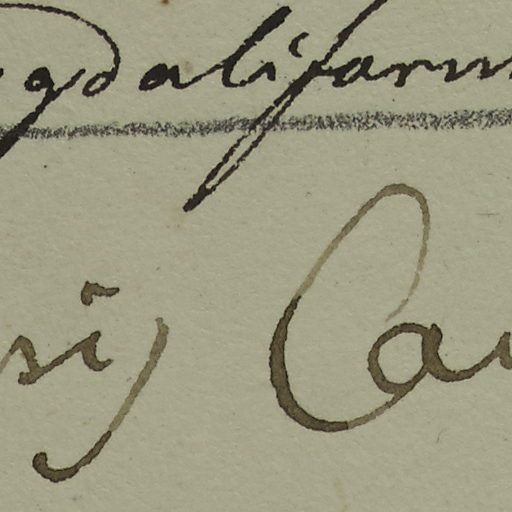 gdaliform
sij Ca